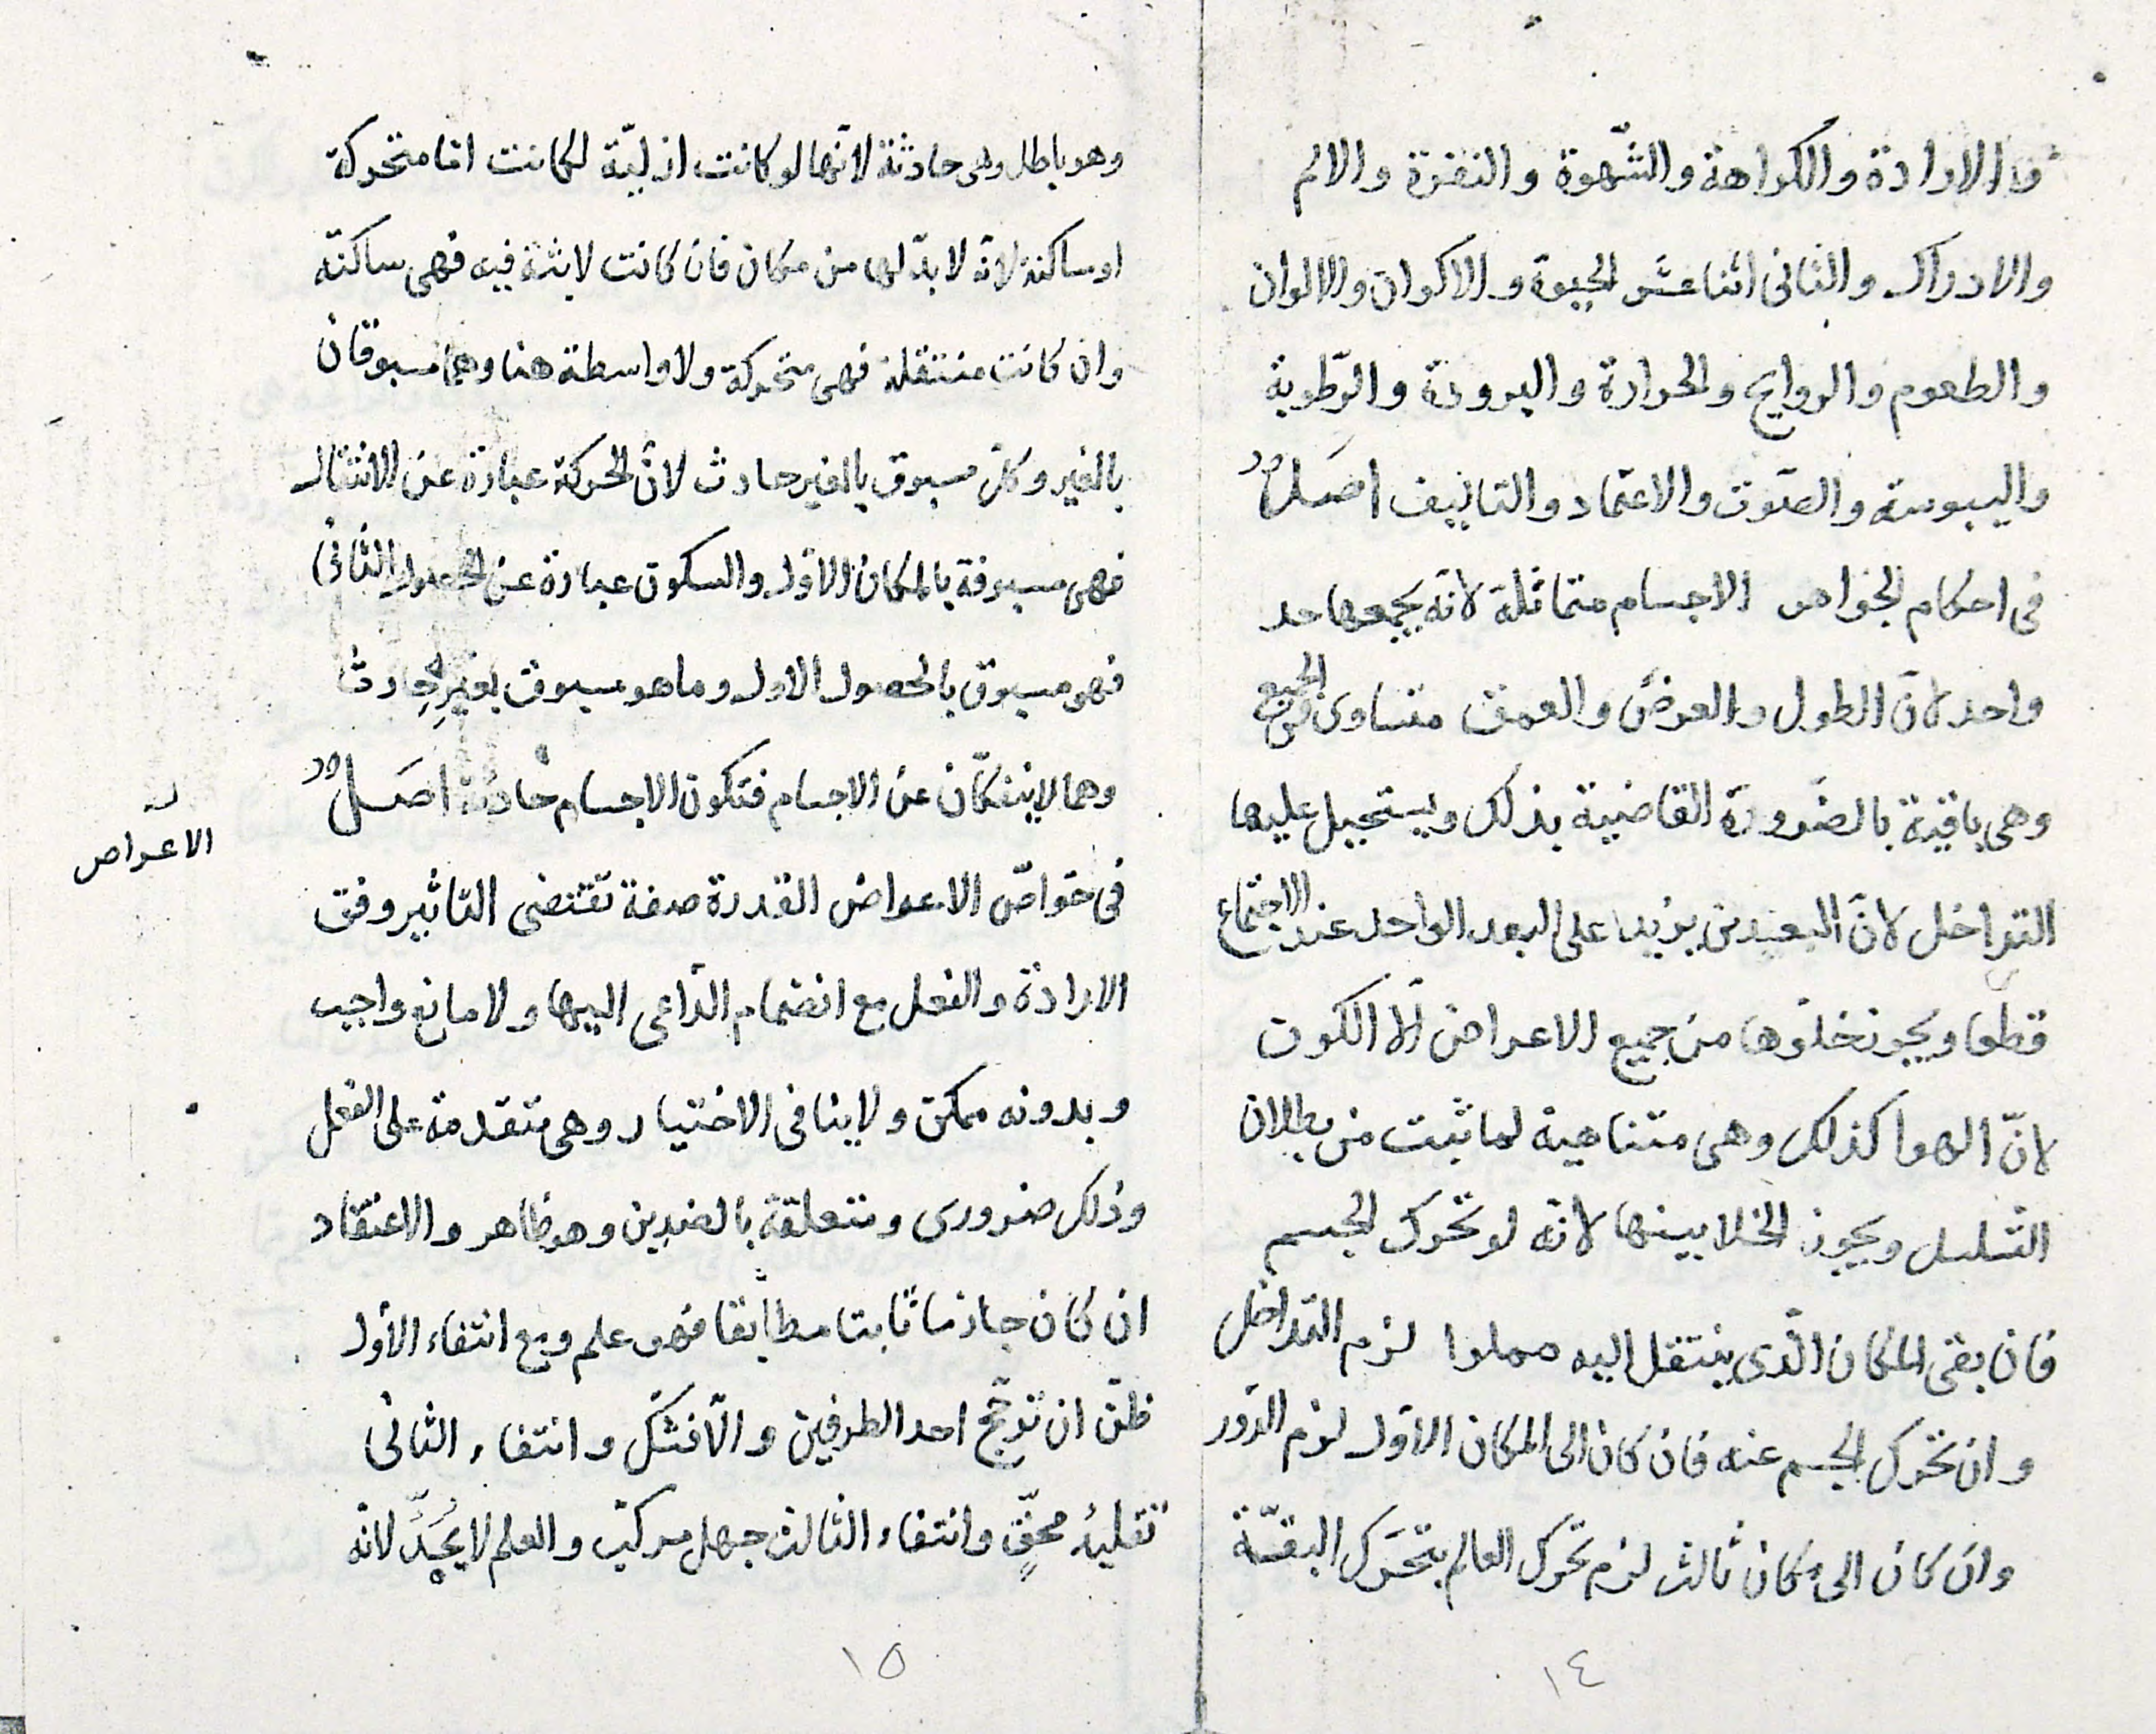 والارادة والكراهة والشّهوة والنفرة والالم
والادراك والثانى اثنا عشر الحيوة والاكوان والالوان
والطعوم والروايح والحرارة والبرودة والرّطوبة
واليبوسة والصّوت والاعتماد والتاليف اصل
فى احكام الجواهر الاجسام متماثلة لانّه يجمعها حد
واحد لانّ الطول والعرض والعمق متساوى فى الجميع
وهى باقية بالضّرورة القاضية بذلك ويستحيل عليها
التداخل لانّ البعدين يزيدا على البعد الواحد عند الاجتماع
قطعا ويجوز خلوّها من جميع الاعراض الّا الكون
لانّ الهوا كذلك وهى متناهية لما ثبت من بطلان
التسلسل ويجوز الخلا بينها لانّه لو تحرك الجسم
فان بقى المكان الّذى ينتقل اليه مملوا لزم التداخل
وان تحرك الجسم عنه فان كان الى المكان الاوّل لزم الدّور
وان كان الى مكان ثالث لزم تحرك العالم بتحرّك البقّة
١٤
وهو باطل وهى حادثة لانّها لو كانت ازليّة لكانت امّا متحركة
او ساكنة لانّه لا بدّ لها من مكان فان كانت لابثة فيه فهى ساكنة
وان كانت منتقلة فهى متحركة ولا واسطة هنا وهما مسبوقان
بالغير وكلّ مسبوق بالغير حادث لانّ الحركة عبارة عن الانتقال
فهى مسبوقة بالمكان الاوّل والسكون عبارة عن الحصول الثانى
فهو مسبوق بالحصول الاول وما هو مسبوق بغيرِ حادث
وهما لا ينفكّان عن الاجسام فتكون الاجسام حادثة اصل
فى خواصّ الاعراض القدرة صفة تقتضى التاثير وفق
الاعراض
الارادة والفعل مع انضمام الدّاعى اليها ولا مانع واجب
وبدونه ممكن ولا ينافى الاختيار وهى متقدمة على الفعل
وذلك ضرورى ومتعلقة بالضدين وهو ظاهر والاعتقاد
ان كان جازما ثابتا مطابقا فهو علم ومع انتفاء الأول
ظنّ ان ترجّح احد الطرفين والّا فشكّ وانتفاء الثانى
تقليدُ محقٍّ وانتفاء الثالث جهل مركب والعلم لا يُحَدُّ لانّه
١٥